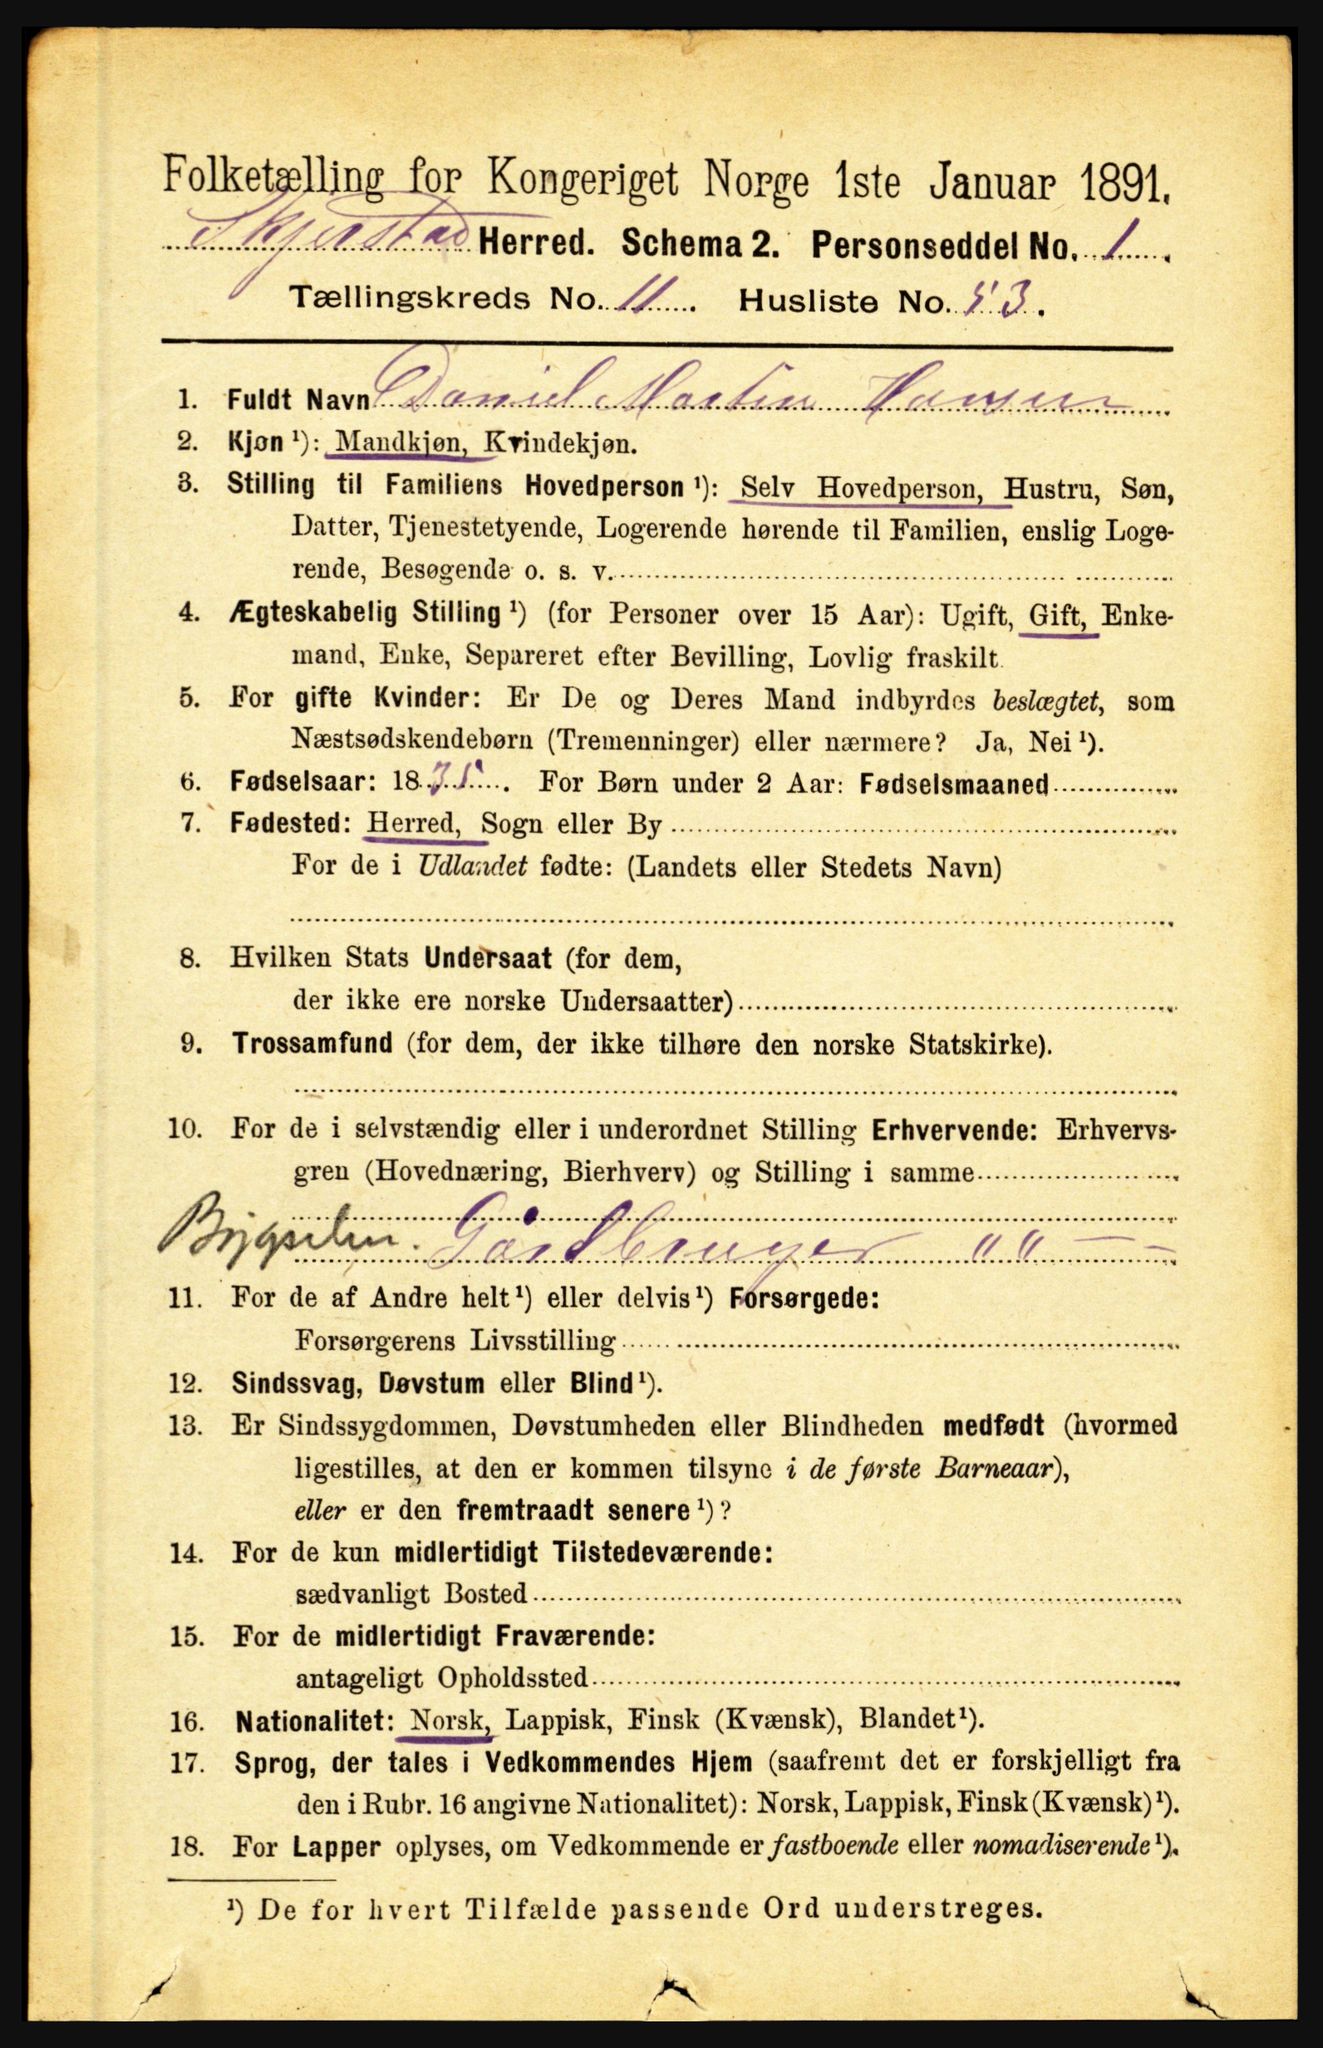 Folketælling for Kongeriget Norge 1ste Januar 1891.
Skjerstad Herred. Schema 2. Personseddel No. 1
Tællingskreds No. 11. Husliste No. 53.
1. Fuldt Navn Daniel Martin Hansen
2. Kjøn ¹): Mandkjøn, Kvindekjøn.
3. Stilling til Familiens Hovedperson ¹): Selv Hovedperson, Hustru, Søn,
Datter, Tjenestetyende, Logerende hørende til Familien, enslig Loge-
rende, Besøgende o. s. v.
4. Ægteskabelig Stilling ¹) (for Personer over 15 Aar): Ugift, Gift, Enke-
mand, Enke, Separeret efter Bevilling, Lovlig fraskilt.
5. For gifte Kvinder: Er De og Deres Mand indbyrdes beslægtet, som
Næstsødskendebørn (Tremenninger) eller nærmere? Ja, Nei ¹).
6. Fødselsaar: 1835. For Børn under 2 Aar: Fødselsmaaned
7. Fødested: Herred, Sogn eller By
For de i Udlandet fødte: (Landets eller Stedets Navn)
8. Hvilken Stats Undersaat (for dem,
der ikke ere norske Undersaatter)
9. Trossamfund (for dem, der ikke tilhøre den norske Statskirke).
10. For de i selvstændig eller i underordnet Stilling Erhvervende: Erhvervs-
gren (Hovednæring, Bierhverv) og Stilling i samme
Bygselm. Gaardbruger " " — —
11. For de af Andre helt ¹) eller delvis ¹) Forsørgede:
Forsørgerens Livsstilling
12. Sindssvag, Døvstum eller Blind ¹).
13. Er Sindssygdommen, Døvstumheden eller Blindheden medfødt (hvormed
ligestilles, at den er kommen tilsyne i de første Barneaar),
eller er den fremtraadt senere ¹)?
14. For de kun midlertidigt Tilstedeværende:
sædvanligt Bosted
15. For de midlertidigt Fraværende:
antageligt Opholdssted
16. Nationalitet: Norsk, Lappisk, Finsk (Kvænsk), Blandet ¹).
17. Sprog, der tales i Vedkommendes Hjem (saafremt det er forskjelligt fra
den i Rubr. 16 angivne Nationalitet): Norsk, Lappisk, Finsk (Kvænsk) ¹).
18. For Lapper oplyses, om Vedkommende er fastboende eller nomadiserende ¹).
¹) De for hvert Tilfælde passende Ord understreges.